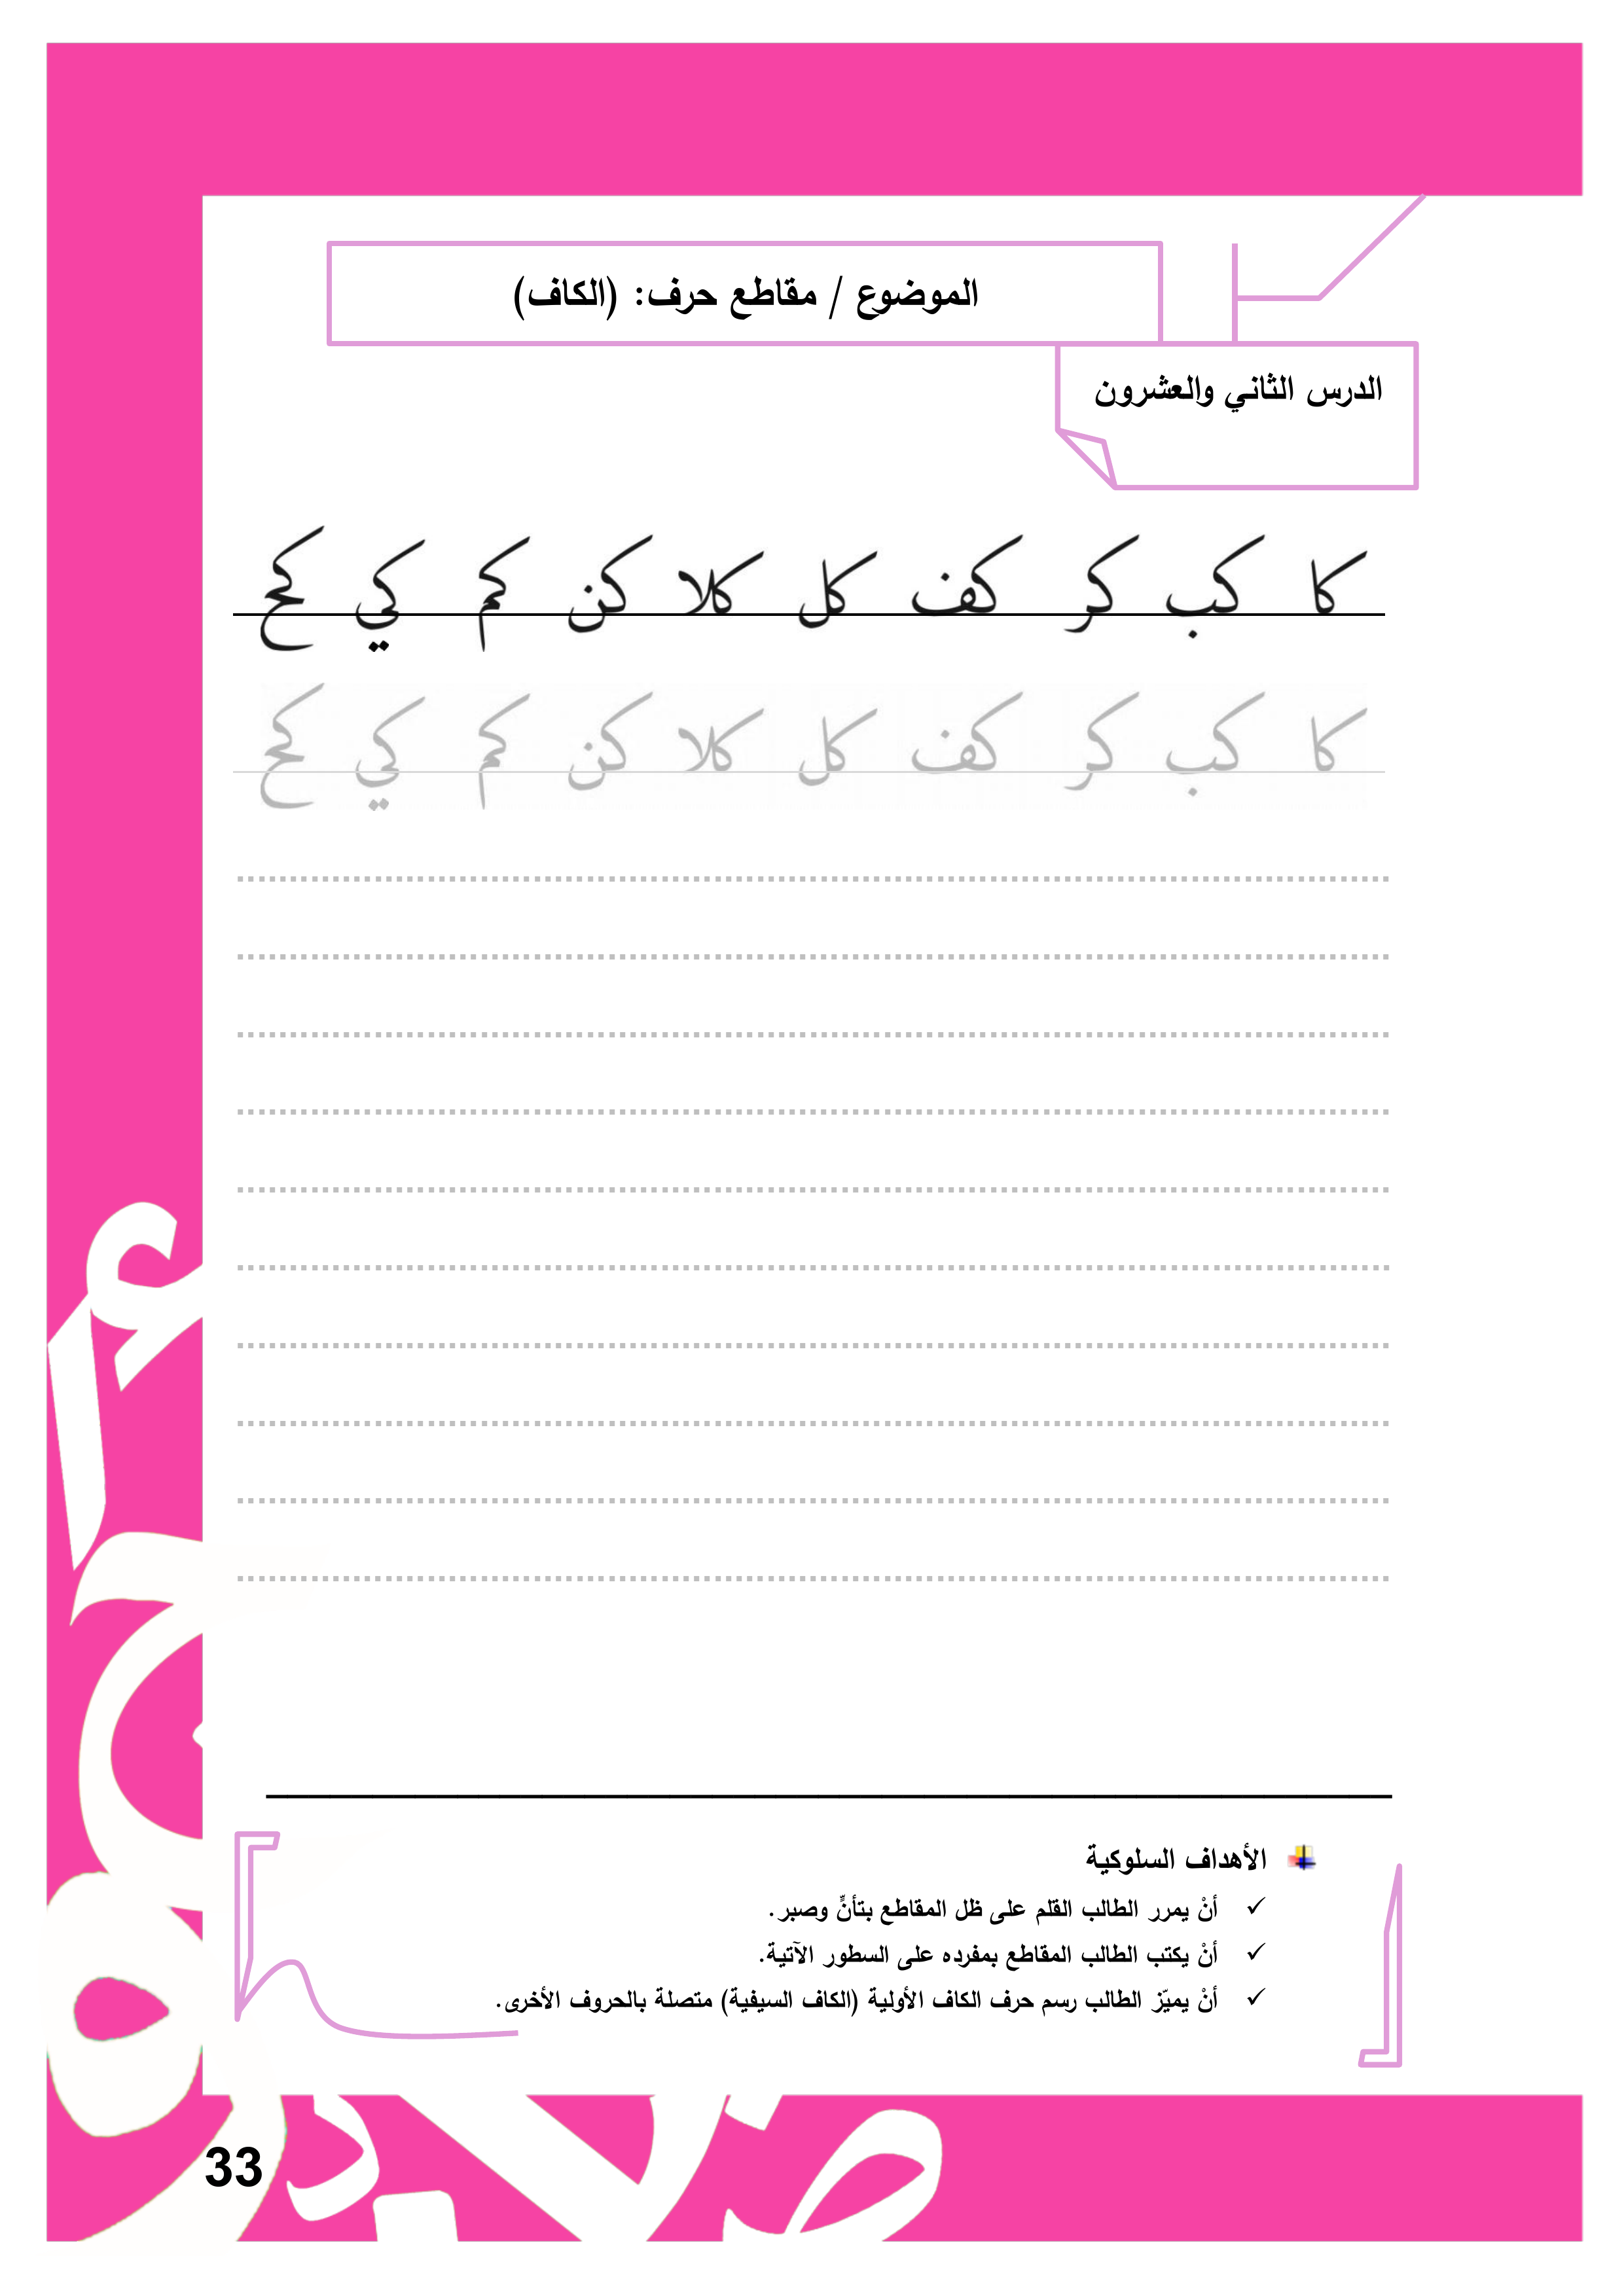 الموضوع / مقاطع حرف: (الكاف)
الدرس الثاني والعشرون
كا كب كر كف كل كلا كن كم كي كح
كا كب كر كف كل كلا كن كم كي كح
الأهداف السلوكية
أنْ يمرر الطالب القلم على ظل المقاطع بتأنٍّ وصبر.
أنْ يكتب الطالب المقاطع بمفرده على السطور الآتية.
أنْ يميّز الطالب رسم حرف الكاف الأولية (الكاف السيفية) متصلة بالحروف الأخرى.
33